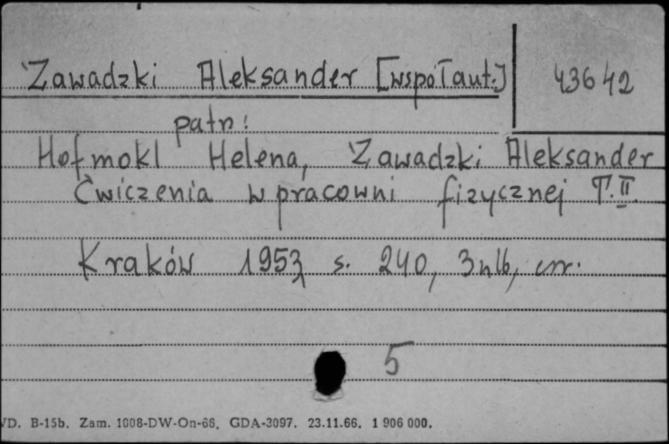 Zawadzki Aleksander [współaut.] 43642
patrz:
Hofmokl Helena, Zawadzki Aleksander
Ćwiczenia w pracowni fizycznej T.II.
Kraków 1953, s. 240, 3nlb,
5
D. B-15b. Zam. 1008-DW-On-66. GDA-3097. 23.11.66. 1 906 000.